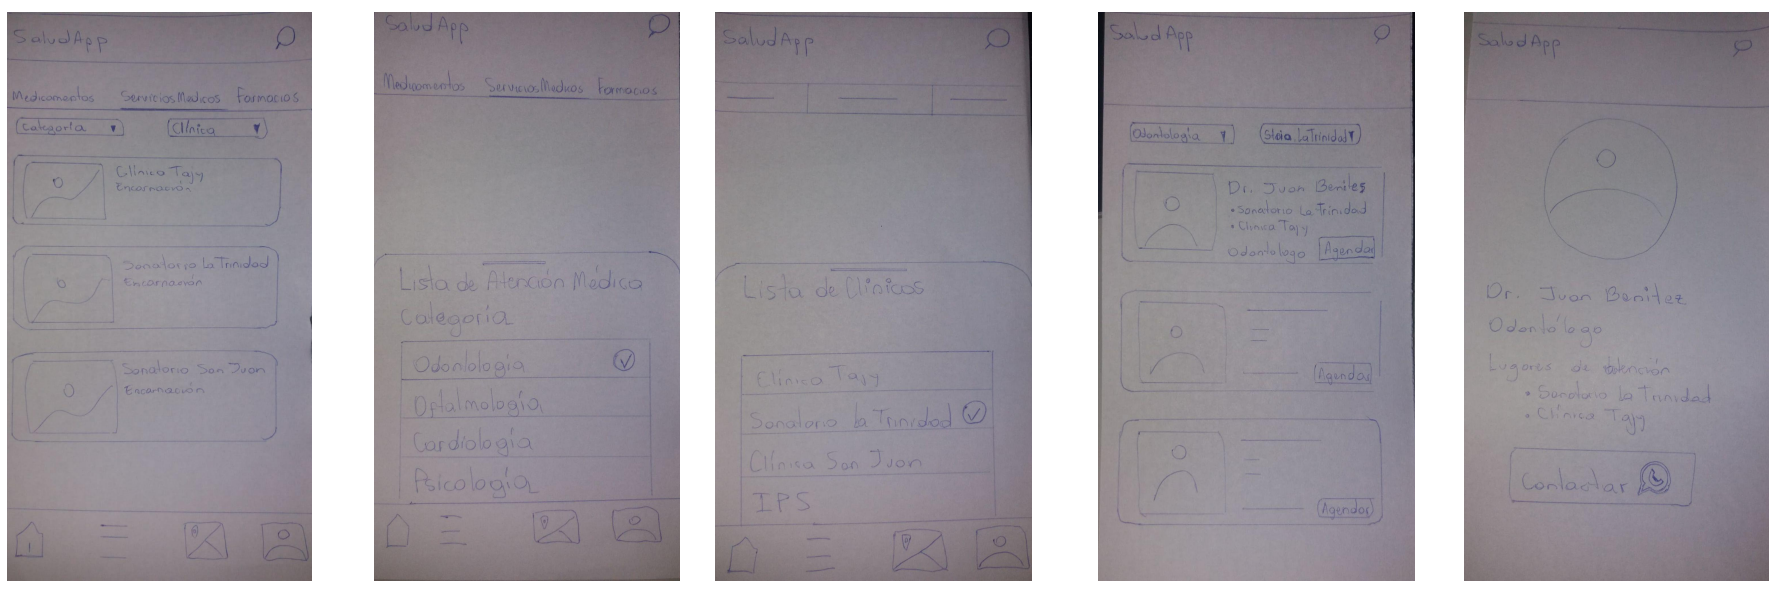 SaludApp
Medicamentos Servicios Medicos Farmacias
Categoría Clínica
Clínica Tajy
Encarnación
Sanatorio La Trinidad
Encarnación
Sanatorio San Juan
Encarnación
SaludApp
Medicamentos Servicios Medicos Farmacias
Lista de Atención Médica
Categoría
Odontología
Oftalmología
Cardiología
Psicología
SaludApp
Lista de Clínicas
Clínica Tajy
Sanatorio la Trinidad
Clínica San Juan
IPS
SaludApp
Odontología Stoio. La Trinidad
Dr. Juan Benites
• Sanatorio La Trinidad
• Clínica Tajy
Odontologo Agendar
Agendar
Agendar
SaludApp
Dr. Juan Benitez
Odontólogo
Lugares de atención
• Sanatorio la Trinidad
• Clínica Tajy
Contactar